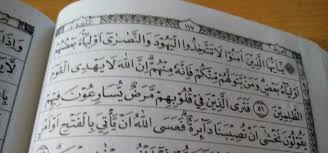 ١١٧
يٰٓاَيُّهَا الَّذِيْنَ اٰمَنُوْا لَا تَتَّخِذُوا الْيَهُوْدَ وَالنَّصٰرٰٓى اَوْلِيَآءَ بَعْضُهُمْ
اَوْلِيَآءُ بَعْضٍ وَمَنْ يَتَوَلَّهُمْ مِنْكُمْ فَاِنَّهٗ مِنْهُمْ اِنَّ اللّٰهَ لَا يَهْدِى الْقَوْمَ
الظّٰلِمِيْنَ ٥١ فَتَرَى الَّذِيْنَ فِيْ قُلُوْبِهِمْ مَرَضٌ يُسَارِعُوْنَ فِيْهِمْ
يَقُوْلُوْنَ نَخْشٰٓى اَنْ تُصِيْبَنَا دَآئِرَةٌ فَعَسَى اللّٰهُ اَنْ يَأْتِيَ بِالْفَتْحِ اَوْ اَمْرٍ
وَاِذَا